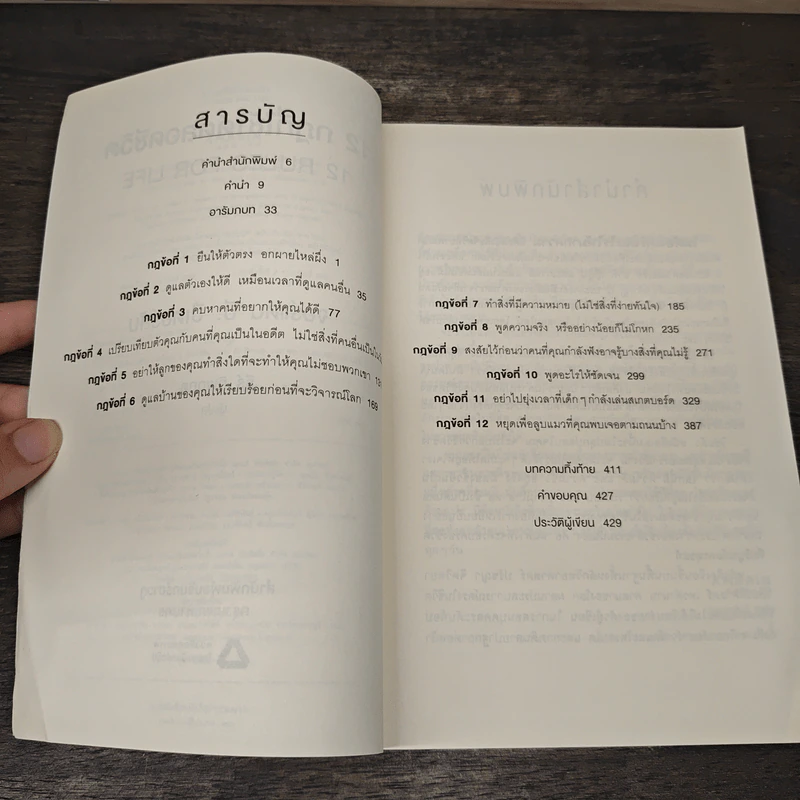 สารบัญ
คำนำสำนักพิมพ์ 6
คำนำ 9
อารัมภบท 33
กฎข้อที่ 1 ยืนให้ตัวตรง อกผายไหล่ผึ่ง 1
กฎข้อที่ 2 ดูแลตัวเองให้ดี เหมือนเวลาที่ดูแลคนอื่น 35
กฎข้อที่ 3 คบหาคนที่อยากให้คุณได้ดี 77
กฎข้อที่ 4 เปรียบเทียบตัวคุณกับคนที่คุณเป็นในอดีต ไม่ใช่สิ่งที่คนอื่นเป็นใน
กฎข้อที่ 5 อย่าให้ลูกของคุณทำสิ่งใดที่จะทำให้คุณไม่ชอบพวกเขา
กฎข้อที่ 6 ดูแลบ้านของคุณให้เรียบร้อยก่อนที่จะวิจารณ์โลก 169
กฎข้อที่ 7 ทำสิ่งที่มีความหมาย (ไม่ใช่สิ่งที่ง่ายทันใจ) 185
กฎข้อที่ 8 พูดความจริง หรืออย่างน้อยก็ไม่โกหก 235
กฎข้อที่ 9 สงสัยไว้ก่อนว่าคนที่คุณกำลังฟังอาจรู้บางสิ่งที่คุณไม่รู้ 271
กฎข้อที่ 10 พูดอะไรให้ชัดเจน 299
กฎข้อที่ 11 อย่าไปยุ่งเวลาที่เด็กๆ กำลังเล่นสเกตบอร์ด 329
กฎข้อที่ 12 หยุดเพื่อลูบแมวที่คุณพบเจอตามถนนบ้าง 387
บทความทิ้งท้าย 411
คำขอบคุณ 427
ประวัติผู้เขียน 429